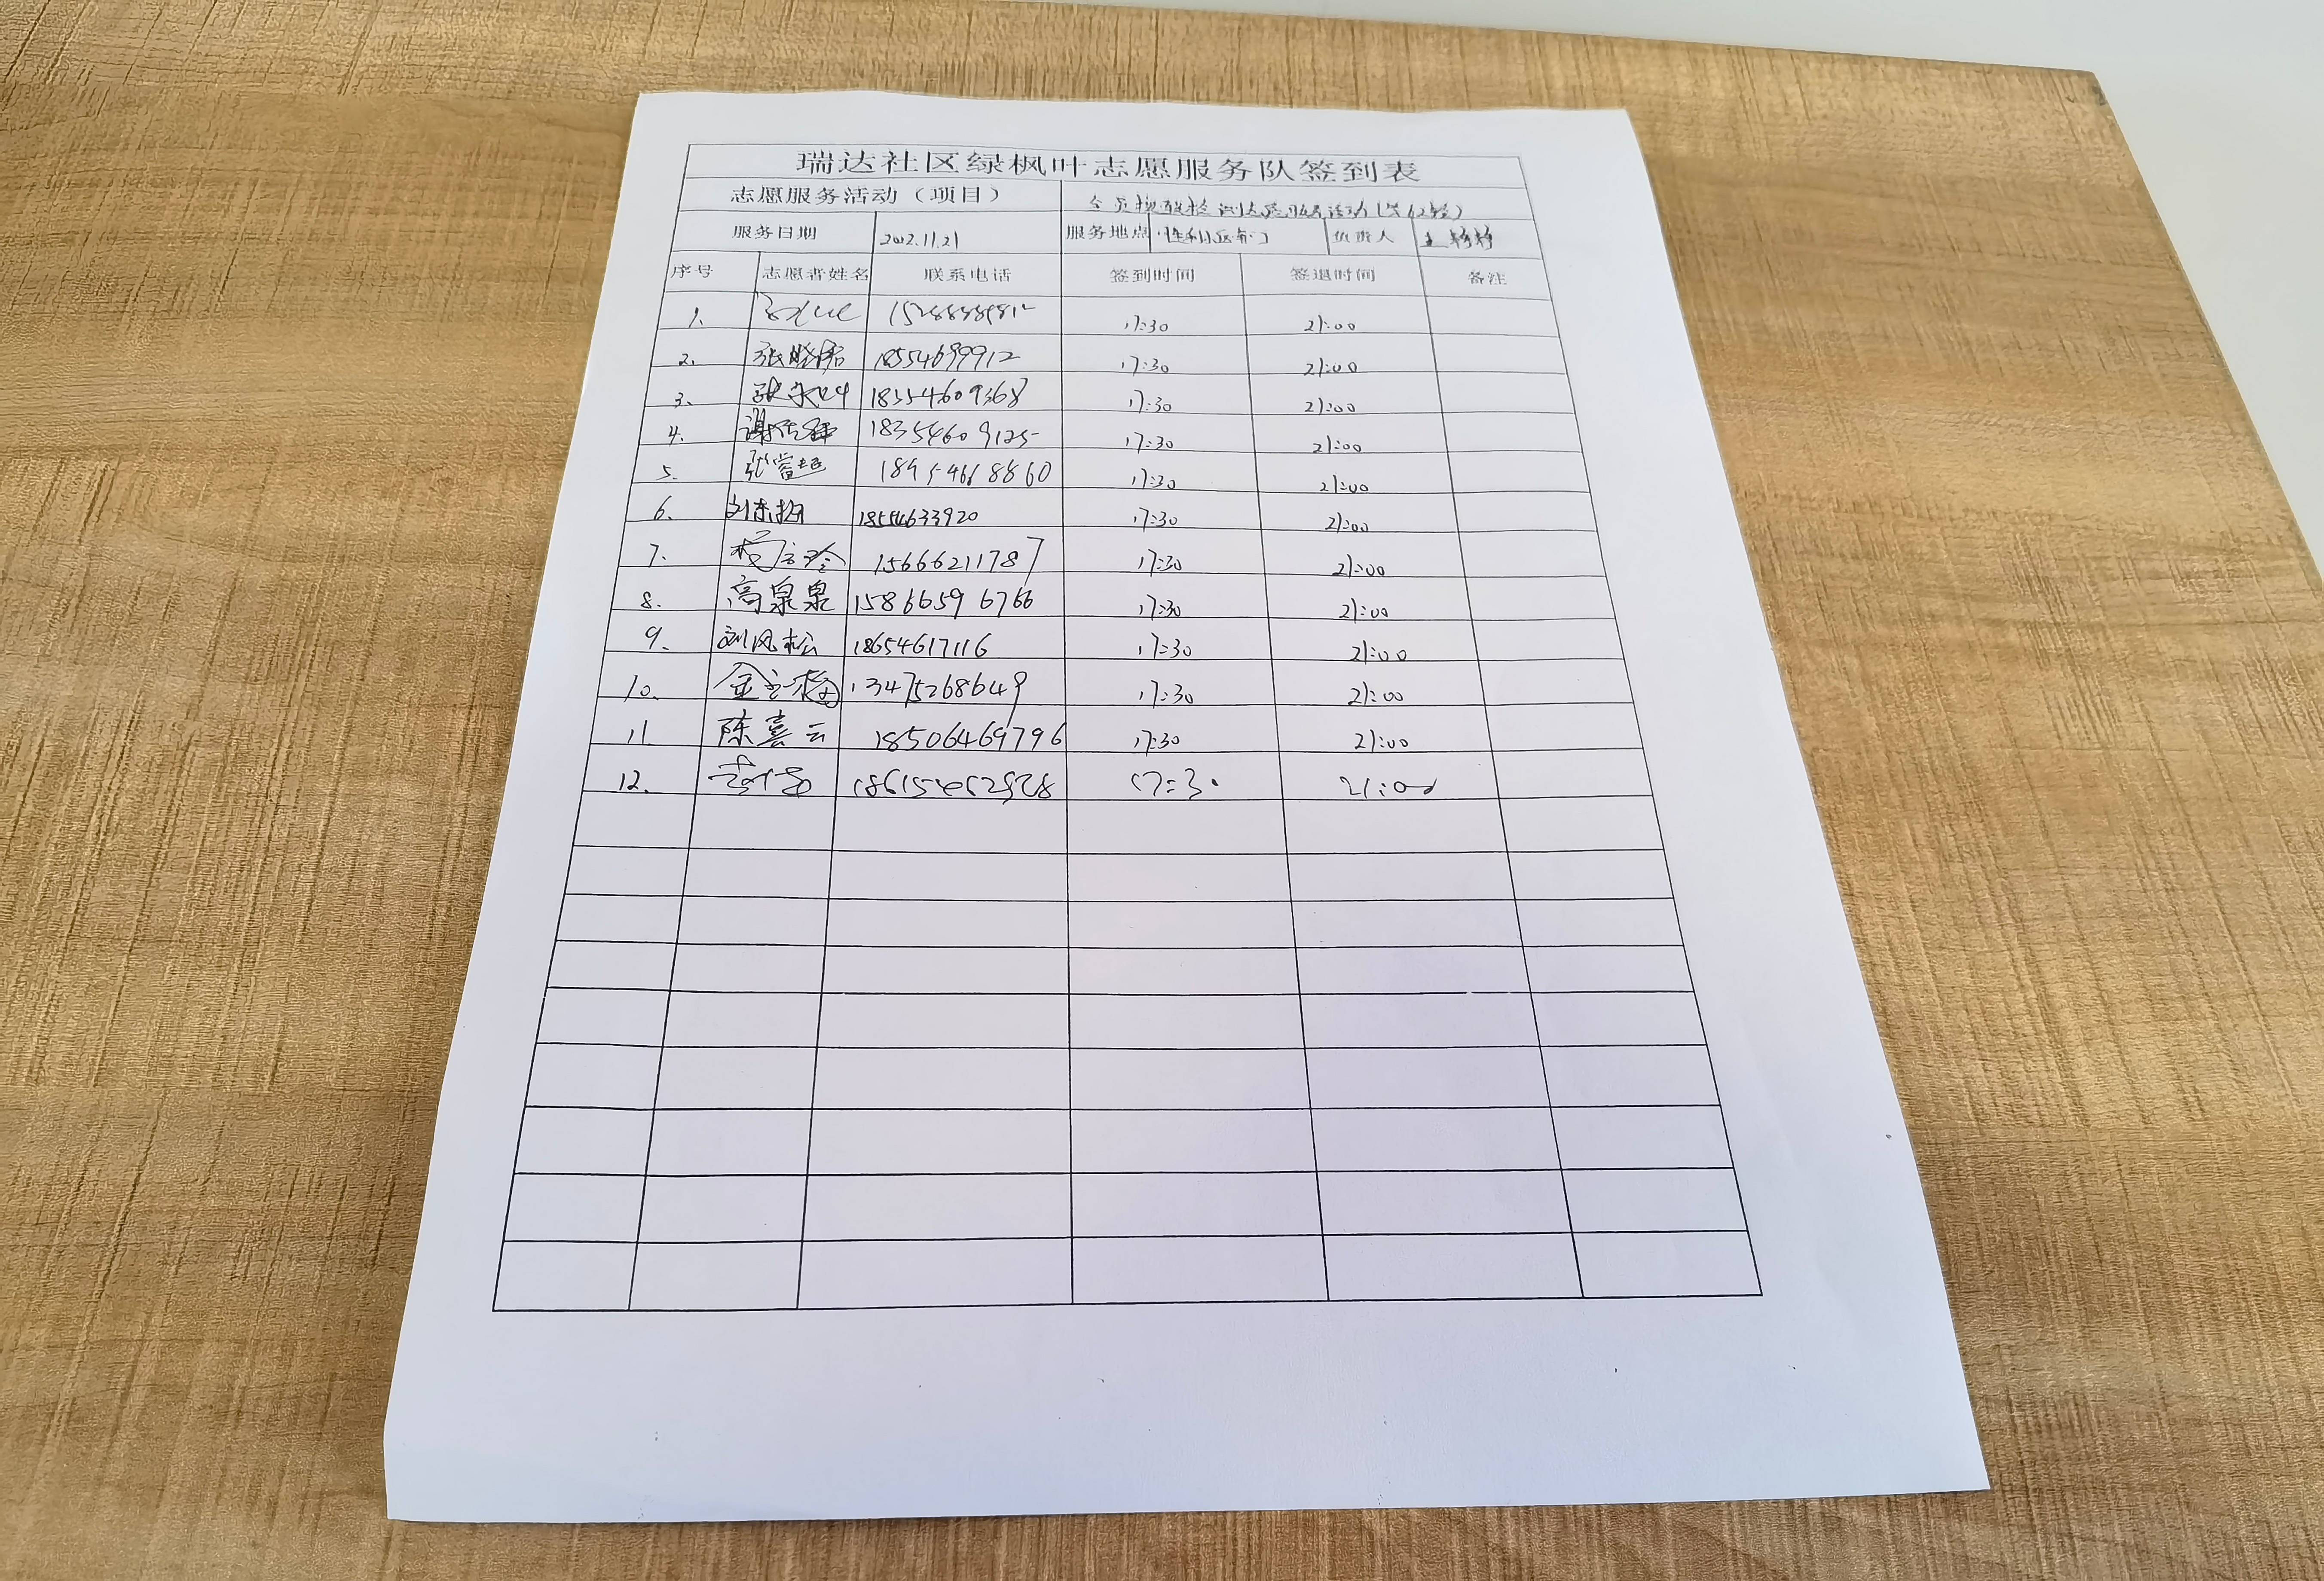 瑞达社区绿枫叶志愿服务队签到表
志愿服务活动（项目） 全员核酸检测志愿服务活动（第62轮）
服务日期 2022.11.21 服务地点 负责人 王静静
序号 志愿者姓名 联系电话 签到时间 签退时间 备注
1. 17:30 21:00
2. 张晓娟 18554699912 17:30 21:00
3. 18554609368 17:30 21:00
4. 18354609125 17:30 21:00
5. 张营超 18954668860 17:30 21:00
6. 刘东梅 18554633920 17:30 21:00
7. 15666211787 17:30 21:00
8. 高泉泉 15866596766 17:30 21:00
9. 刘风松 18654617116 17:30 21:00
10. 金立梅 13475268649 17:30 21:00
11 陈喜云 18506469796 17:30 21:00
12. 17:30 21:00